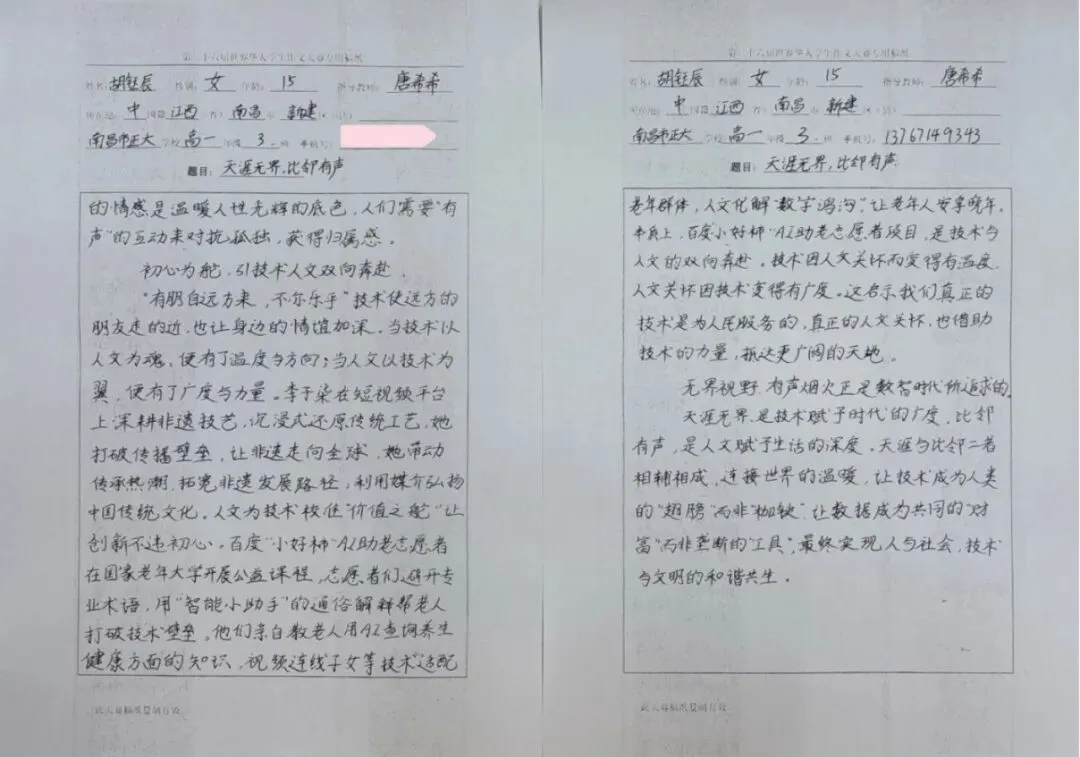 第二十六届世界华人学生作文大赛专用稿纸
姓名: 胡钰辰 性别: 女 年龄: 15 指导教师: 唐希希
所在地: 中 国籍 江西 省 南昌 市 新建 区(县)
南昌市正大 学校 高一 年级 3. 班 手机号:
题目: 天涯无界,比邻有声
的情感是温暖人性光辉的底色,人们需要“有
声”的互动来对抗孤独,获得归属感。
初心为舵,引技术人文双向奔赴。
“有朋自远方来,不亦乐乎”技术使远方的
朋友走的近,也让身边的情谊加深。当技术以
人文为魂,便有了温度与方向;当人文以技术为
翼,便有了广度与力量。李子柒在短视频平台
上深耕非遗技艺,沉浸式还原传统工艺,她
打破传播壁垒,让非遗走向全球,她带动
传承热潮,拓宽非遗发展路径,利用媒介弘扬
中国传统文化。人文为技术校准“价值之舵”让
创新不违初心。百度“小好柿”AI助老志愿者
在国家老年大学开展公益课程,志愿者们避开专
业术语,用“智能小助手”的通俗解释帮老人
打破技术壁垒。他们亲自教老人用AI查询养生
健康方面的知识,视频连线子女等技术适配
此大赛稿纸复制有效
第二十六届世界华人学生作文大赛专用稿纸
姓名: 胡钰辰 性别: 女 年龄: 15 指导教师: 唐希希
所在地: 中 国籍 江西 省 南昌 市 新建 区(县)
南昌市正大 学校 高一 年级 3. 班 手机号: 13767149343
题目: 天涯无界,比邻有声
老年群体,人文化解“数字鸿沟”,让老年人安享晚年。
本质上,百度小好柿“AI助老志愿者项目,是技术与
人文的双向奔赴。技术因人文关怀而变得有温度,
人文关怀因技术变得有广度。这启示我们真正的
技术是为人民服务的,真正的人文关怀,也借助
技术的力量,抵达更广阔的天地。
无界视野,有声烟火正是数智时代所追求的。
天涯无界,是技术赋予时代的广度,比邻
有声,是人文赋予生活的深度。天涯与比邻二者
相辅相成,连接世界的温暖,让技术成为人类
的“翅膀”而非“枷锁”,让数据成为共同的“财
富”而非垄断的“工具”,最终实现人与社会,技术
与文明的和谐共生。
此大赛稿纸复制有效